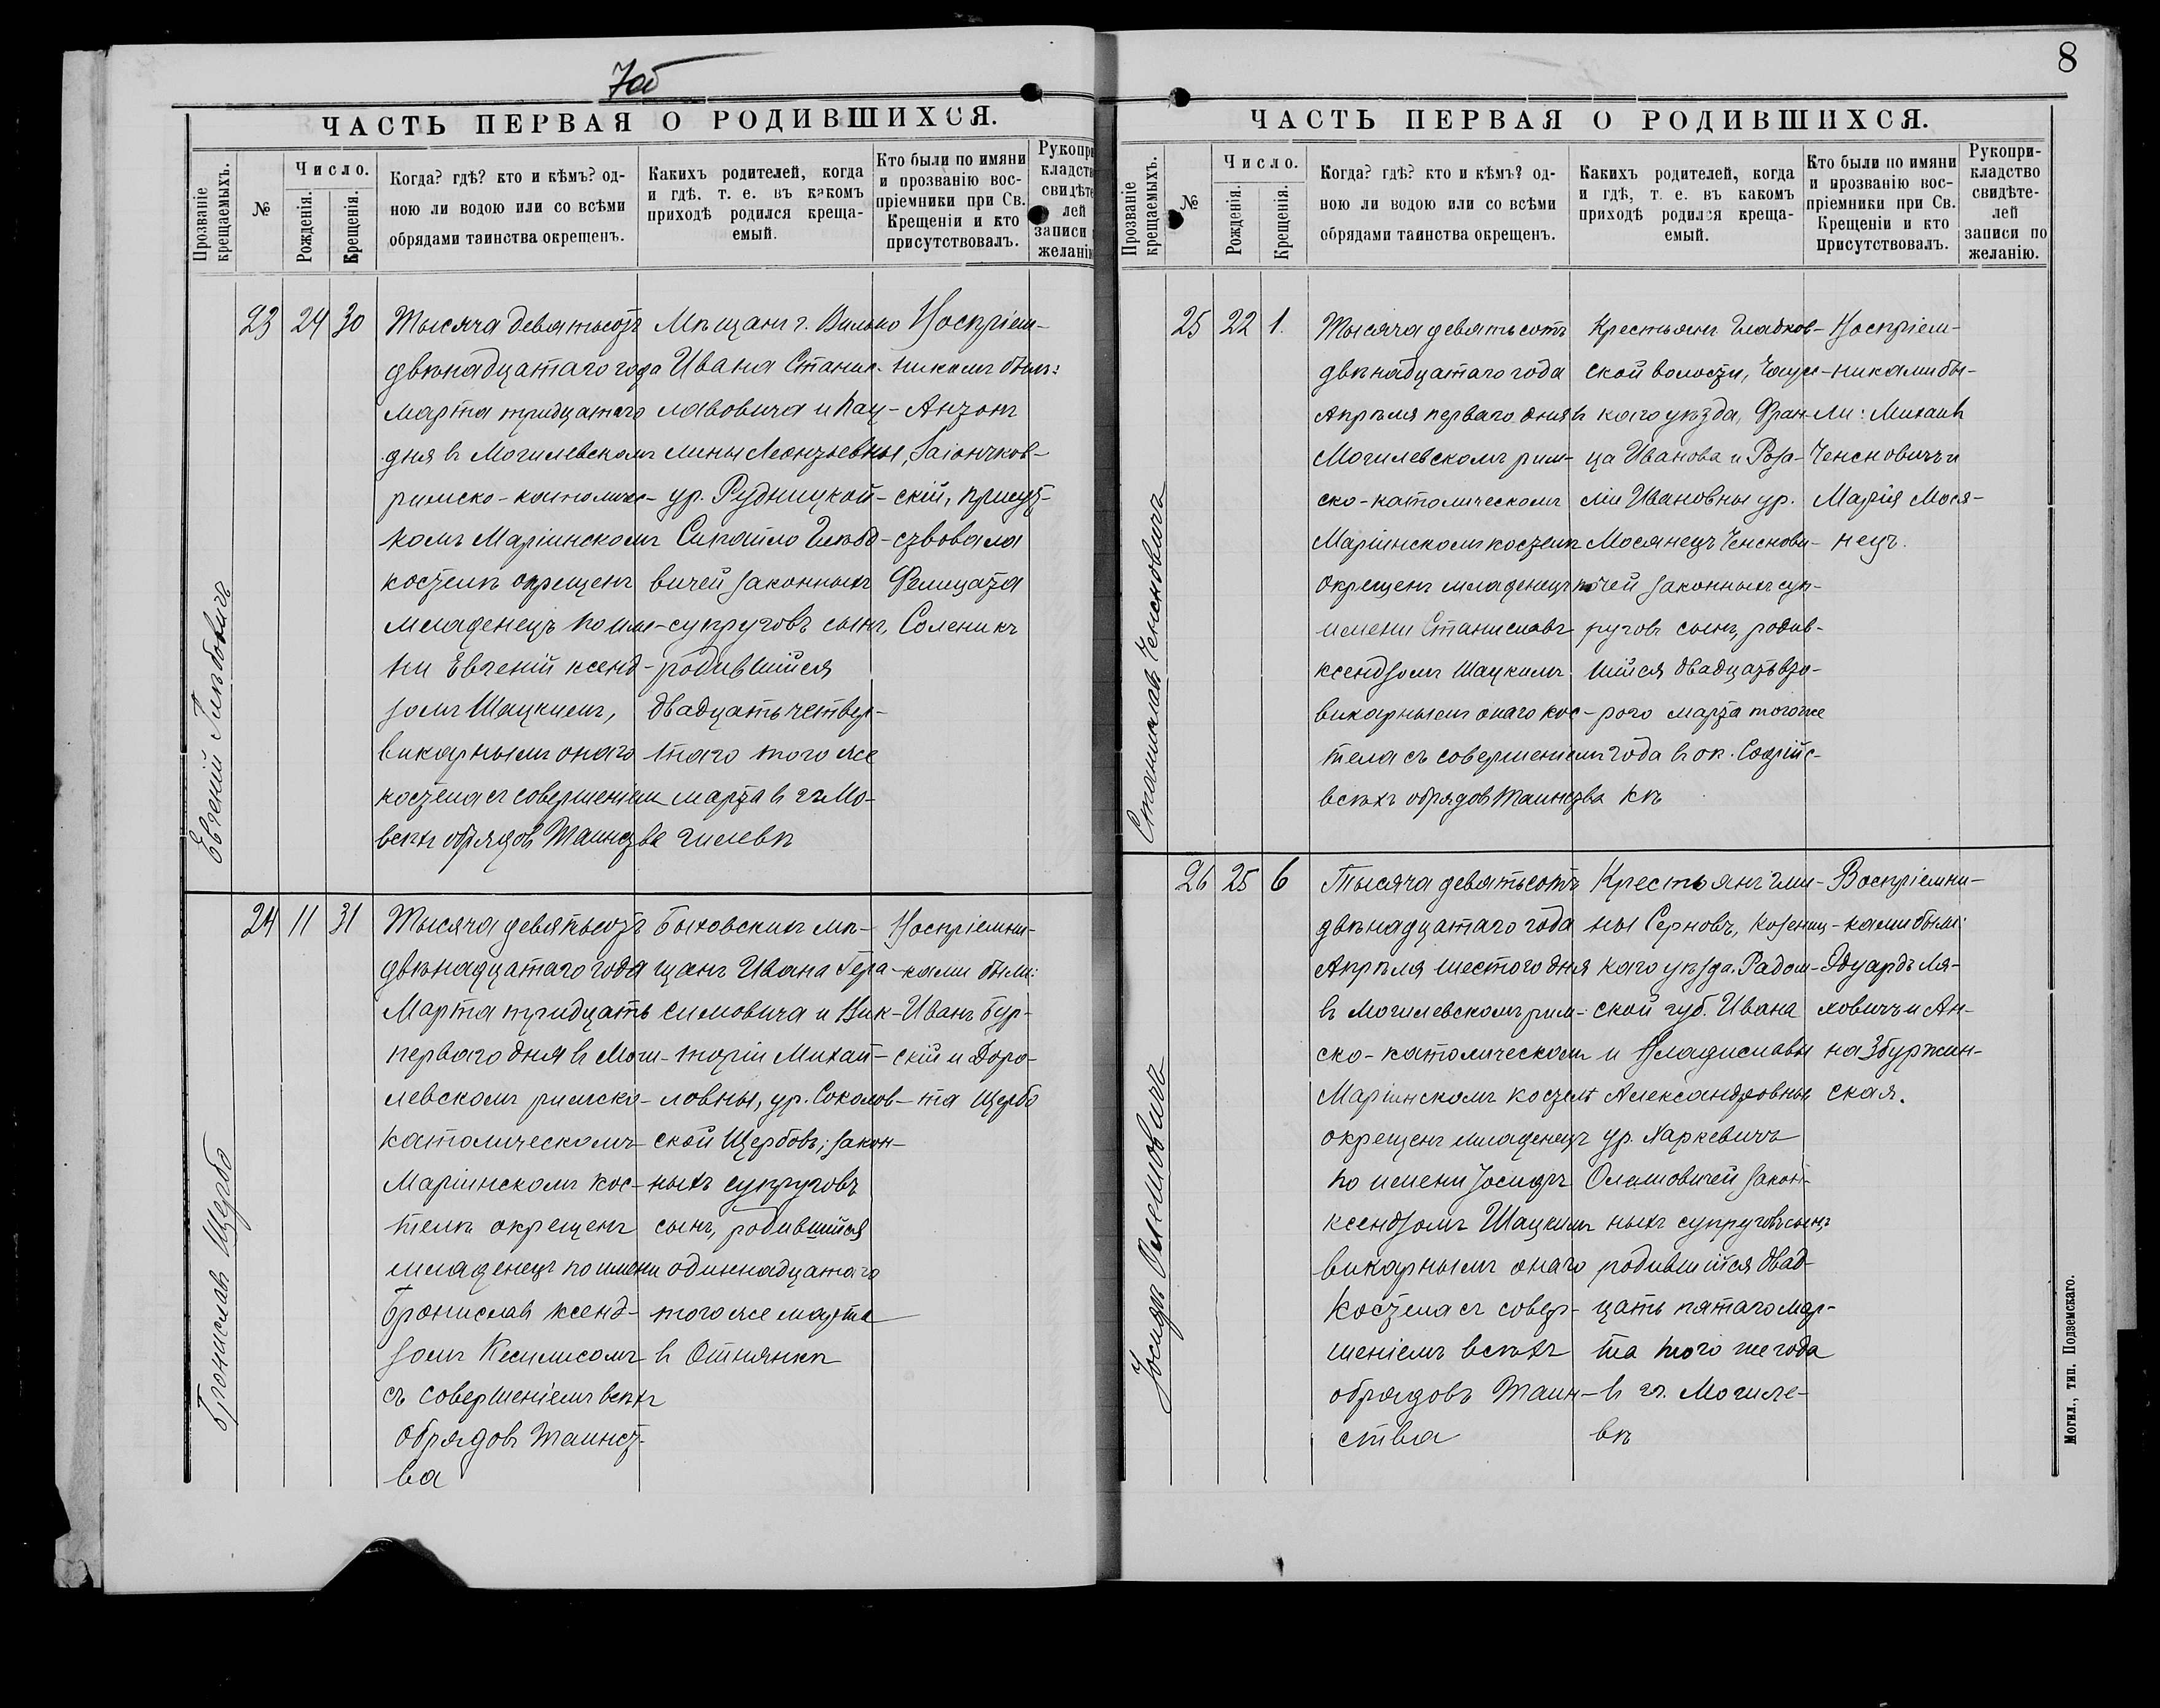 7об
ЧАСТЬ ПЕРВАЯ О РОДИВШИХСЯ.
Прозваніе крещаемыхъ.
№
Число.
Рожденія.
Крещенія.
Когда? гдѣ? кто и кѣмъ? од-
ною ли водою или со всѣми
обрядами таинства окрещенъ.
Какихъ родителей, когда
и гдѣ, т. е. въ какомъ
приходѣ родился креща-
емый.
Кто были по имяни
и прозванію вос-
пріемники при Св.
Крещеніи и кто
присутствовалъ.
Рукопри
кладст
свидѣте
лей
записи
желані
Евгеній Глѣбовичъ
23 24 30
Тысяча девятьсотъ
двѣнадцатаго года
марта тридцатаго
дня въ Могилевскомъ
римско-католичес-
комъ Маріинскомъ
костелѣ окрещенъ
младенецъ по име-
ни Евгеній ксенд-
зомъ Шацкимъ,
викарнымъ онаго
костела съ совершеніемъ
всѣхъ обрядовъ Таинства
Мѣщанъ г. Вильно
Ивана Станис-
лавовича и Пау-
лины Леонтьевны,
ур. Рудницкой-
Глѣбо-
вичей законныхъ
супруговъ сынъ,
родившійся
двадцать четвер-
таго того же
марта в гъ Мо-
гилевѣ
Воспріем-
никомъ былъ:
Антонъ
Заіончков-
скій, присут-
ствовала
Фелицата
Соленикъ
Бронислав Щербо
24 11 31
Тысяча девятьсотъ
двѣнадцатаго года
Марта тридцать
перваго дня въ Моги-
левскомъ римско-
католическомъ
Маріинскомъ кос-
телѣ окрещенъ
младенецъ по имени
Брониславъ ксенд-
зомъ
съ совершеніемъ всѣхъ
обрядовъ таинст-
ва
Быховскихъ мѣ-
щанъ Ивана Гера-
симовича и Вик-
торіи Михай-
ловны, ур. Соколов-
ской Щербовъ, закон-
ныхъ супруговъ
сынъ, родившійся
одиннадцатаго
того же марта
в
Воспріемни-
ками были:
Иванъ Бур-
скій и Доро-
та Щербо
8
ЧАСТЬ ПЕРВАЯ О РОДИВШИХСЯ.
Прозваніе крещаемыхъ.
№
Число.
Рожденія.
Крещенія.
Когда? гдѣ? кто и кѣмъ? од-
ною ли водою или со всѣми
обрядами таинства окрещенъ.
Какихъ родителей, когда
и гдѣ, т. е. въ какомъ
приходѣ родился креща-
емый.
Кто были по имяни
и прозванію вос-
пріемники при Св.
Крещеніи и кто
присутствовалъ.
Рукопри-
кладство
свидѣте-
лей
записи по
желанію.
Станиславъ Ченснович
25 22 1.
Тысяча девятьсотъ
двѣнадцатаго года
Апрѣля перваго дня въ
Могилевскомъ рим-
ско-католическомъ
Маріинскомъ костелѣ
окрещенъ младенецъ по
имени Станиславъ
ксендзомъ Шацкимъ
викарнымъ онаго кос-
тела съ совершеніемъ
всѣхъ обрядовъ Таинства
Крестьянъ Гладков-
ской волости, Чаусс-
каго уѣзда, Фран-
ца Иванова и Роза-
ліи Ивановны ур.
Мосянецъ Ченснови-
чей законныхъ суп-
руговъ сынъ, родив-
шійся двадцать вто-
рого марта того же
года в ок. Софійс-
кѣ
Воспріем-
никами бы-
ли: Михаилъ
Ченсновичъ и
Марія Мося-
нецъ.
Іосифъ Олешовичъ
26 25 6
Тысяча девятьсотъ
двѣнадцатаго года
Апрѣля шестого дня
въ Могилевскомъ рим-
ско-католическомъ
Маріинскомъ костелѣ
окрещенъ младенецъ
по имени Іосифъ
ксендзомъ Шацкимъ
викарнымъ онаго
костела съ совер-
шеніемъ всѣхъ
обрядовъ Таин-
ства
Крестьянъ гми-
ны Серновъ, Козениц-
каго уѣзда, Радом-
ской губ. Ивана
и Владиславы
Александровны
ур. Харкевичъ
Олешовичей закон-
ныхъ супруговъ сынъ,
родившійся двад-
цать пятаго мар-
та того же года
в гъ. Могиле-
вѣ
Воспріемни-
ками были:
Эдуардъ Ля-
ховичъ и Ан-
на Збуржин-
ская.
Могил., тип. Подземскаго.